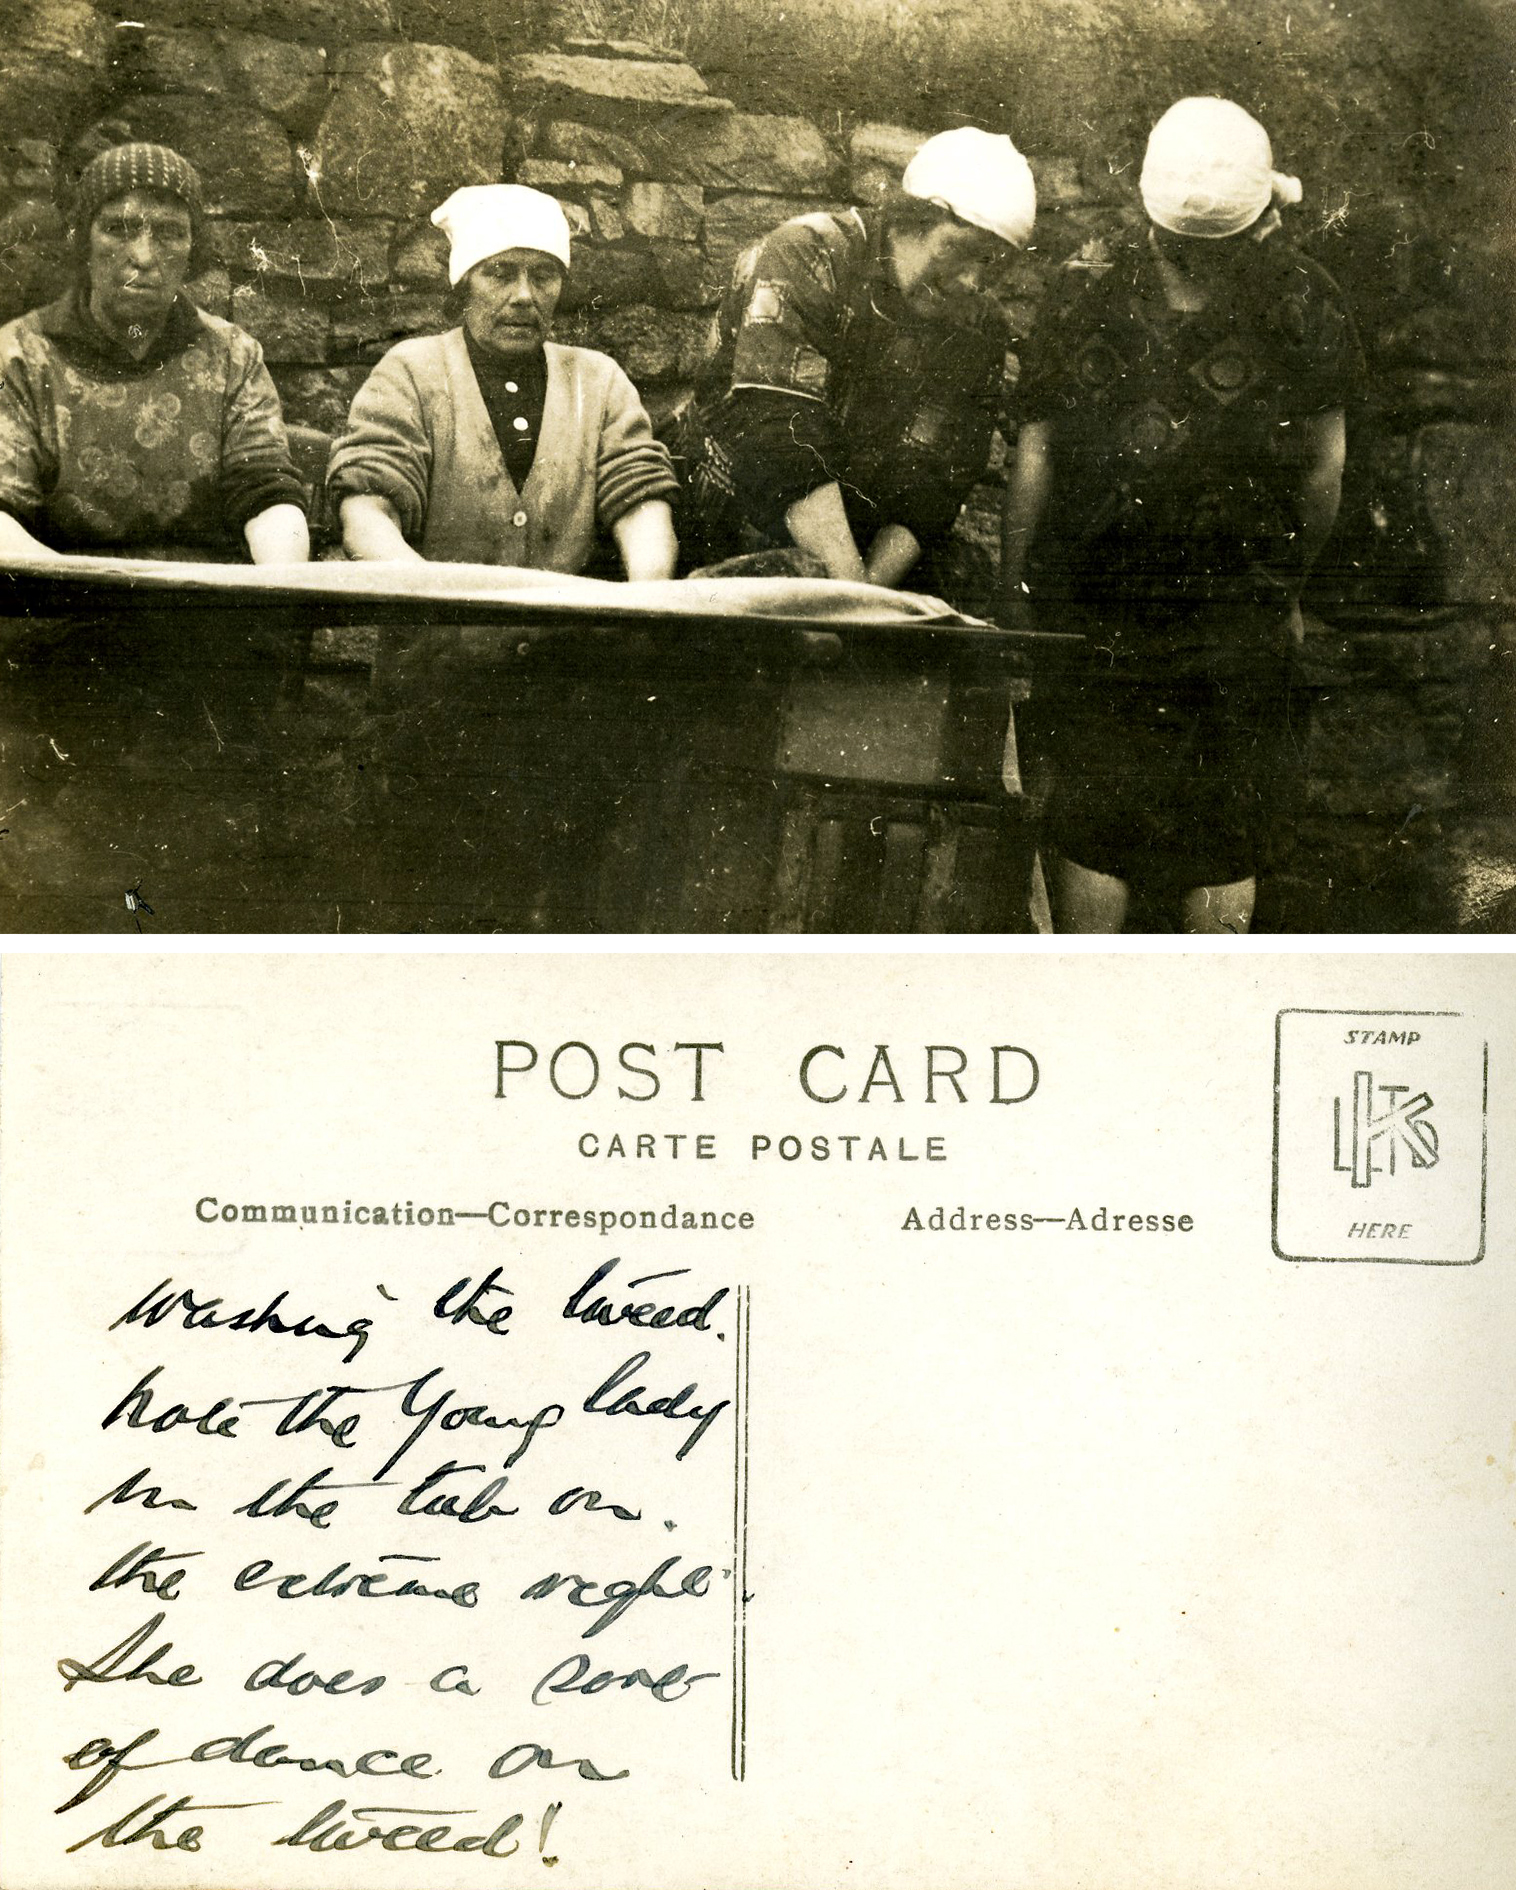 POST CARD
CARTE POSTALE
Communication—Correspondance
Address—Adresse
STAMP
HERE
Washing the tweed.
Note the Young lady
in the tub on
the extreme right.
She does a sort
of dance on
the tweed!